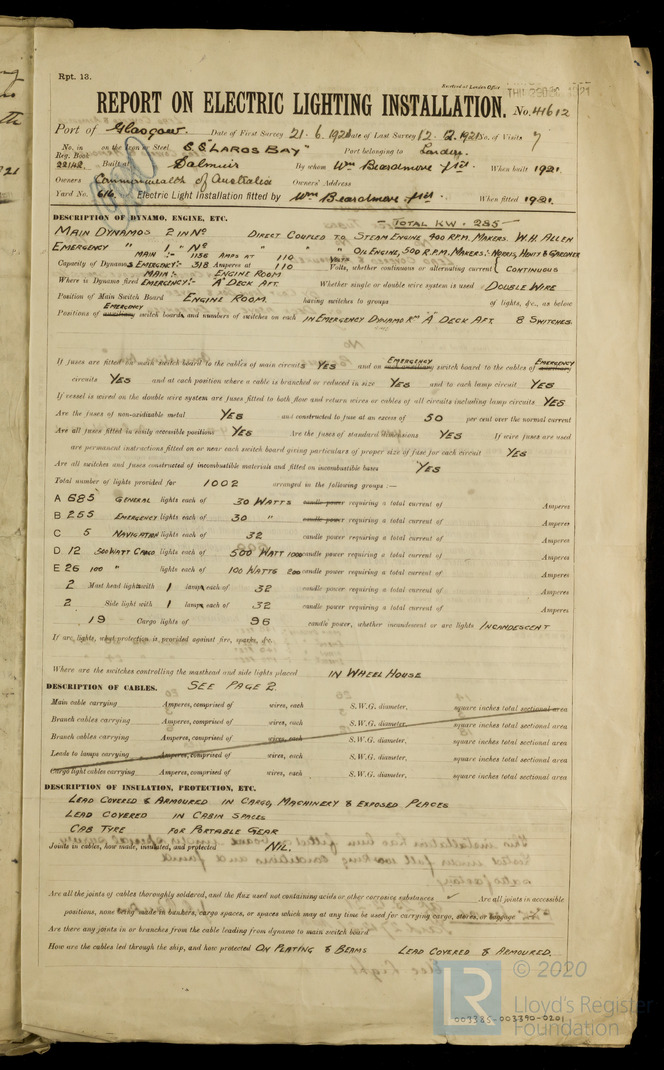 Rpt. 13.
Received at London Office
THU 29 DEC 1921
REPORT ON ELECTRIC LIGHTING INSTALLATION. No. 41612
Port of Glasgow. Date of First Survey 21.6.1921 Date of Last Survey 12. 1921 No. of Visits 7
No. in Reg. Book 22142 on the Iron or Steel S.S "LARGS BAY" Port belonging to London
Built at Dalmuir By whom Wm Beardmore When built 1921
Owners Commonwealth of Australia Owners' Address
Yard No. 616 Electric Light Installation fitted by Wm Beardmore When fitted 1921.
DESCRIPTION OF DYNAMO, ENGINE, ETC. - TOTAL KW = 285 -
MAIN DYNAMOS 2 IN No DIRECT COUPLED TO STEAM ENGINE 400 R.P.M. MAKERS. W.H. ALLEN
EMERGENCY " 1 " No " " " OIL ENGINE, 500 R.P.M. MAKERS:- NORRIS, HENTY & GARDNER
Capacity of Dynamos MAIN :- 1136 AMPS AT 110 VOLTS
EMERGENCY:- 318 Amperes at 110 Volts, whether continuous or alternating current CONTINUOUS
Where is Dynamo fixed MAIN:- ENGINE ROOM EMERGENCY:- "A" DECK AFT. Whether single or double wire system is used DOUBLE WIRE
Position of Main Switch Board ENGINE ROOM. having switches to groups of lights, &c., as below
Positions of auxiliary EMERGENCY switch boards and numbers of switches on each IN EMERGENCY DYNAMO RM "A" DECK AFT. 8 SWITCHES.
If fuses are fitted on main switch board to the cables of main circuits YES and on each auxiliary EMERGENCY switch board to the cables of auxiliary EMERGENCY
circuits YES and at each position where a cable is branched or reduced in size YES and to each lamp circuit YES
If vessel is wired on the double wire system are fuses fitted to both flow and return wires or cables of all circuits including lamp circuits YES
Are the fuses of non-oxidizable metal YES and constructed to fuse at an excess of 50 per cent over the normal current
Are all fuses fitted in easily accessible positions YES Are the fuses of standard dimensions YES If wire fuses are used
are permanent instructions fitted on or near each switch board giving particulars of proper size of fuse for each circuit YES
Are all switches and fuses constructed of incombustible materials and fitted on incombustible bases YES
Total number of lights provided for 1002 arranged in the following groups :—
A 685 GENERAL lights each of 30 WATTS candle power requiring a total current of Amperes
B 255 EMERGENCY lights each of 30 " candle power requiring a total current of Amperes
C 5 NAVIGATION lights each of 32 candle power requiring a total current of Amperes
D 12 500 WATT CARGO lights each of 500 WATT 1000 candle power requiring a total current of Amperes
E 26 100 " lights each of 100 WATTS 200 candle power requiring a total current of Amperes
2 Mast head light with 1 lamps each of 32 candle power requiring a total current of Amperes
2 Side light with 1 lamps each of 32 candle power requiring a total current of Amperes
19 Cargo lights of 96 candle power, whether incandescent or arc lights INCANDESCENT
If arc lights, what protection is provided against fire, sparks, &c.
Where are the switches controlling the masthead and side lights placed IN WHEEL HOUSE
DESCRIPTION OF CABLES. SEE PAGE 2.
Main cable carrying Amperes, comprised of wires, each S.W.G. diameter, square inches total sectional area
Branch cables carrying Amperes, comprised of wires, each S.W.G. diameter, square inches total sectional area
Branch cables carrying Amperes, comprised of wires, each S.W.G. diameter, square inches total sectional area
Leads to lamps carrying Amperes, comprised of wires, each S.W.G. diameter, square inches total sectional area
Cargo light cables carrying Amperes, comprised of wires, each S.W.G. diameter, square inches total sectional area
DESCRIPTION OF INSULATION, PROTECTION, ETC.
LEAD COVERED & ARMOURED IN CARGO, MACHINERY & EXPOSED PLACES
LEAD COVERED IN CABIN SPACES
CAB TYRE FOR PORTABLE GEAR
Joints in cables, how made, insulated, and protected NIL.
Are all the joints of cables thoroughly soldered, and the flux used not containing acids or other corrosive substances ✓ Are all joints in accessible
positions, none being made in bunkers, cargo spaces, or spaces which may at any time be used for carrying cargo, stores, or baggage
Are there any joints in or branches from the cable leading from dynamo to main switch board
How are the cables led through the ship, and how protected ON PLATING & BEAMS LEAD COVERED & ARMOURED.
© 2020
LR
Lloyd's Register
Foundation
003385-003390-0201